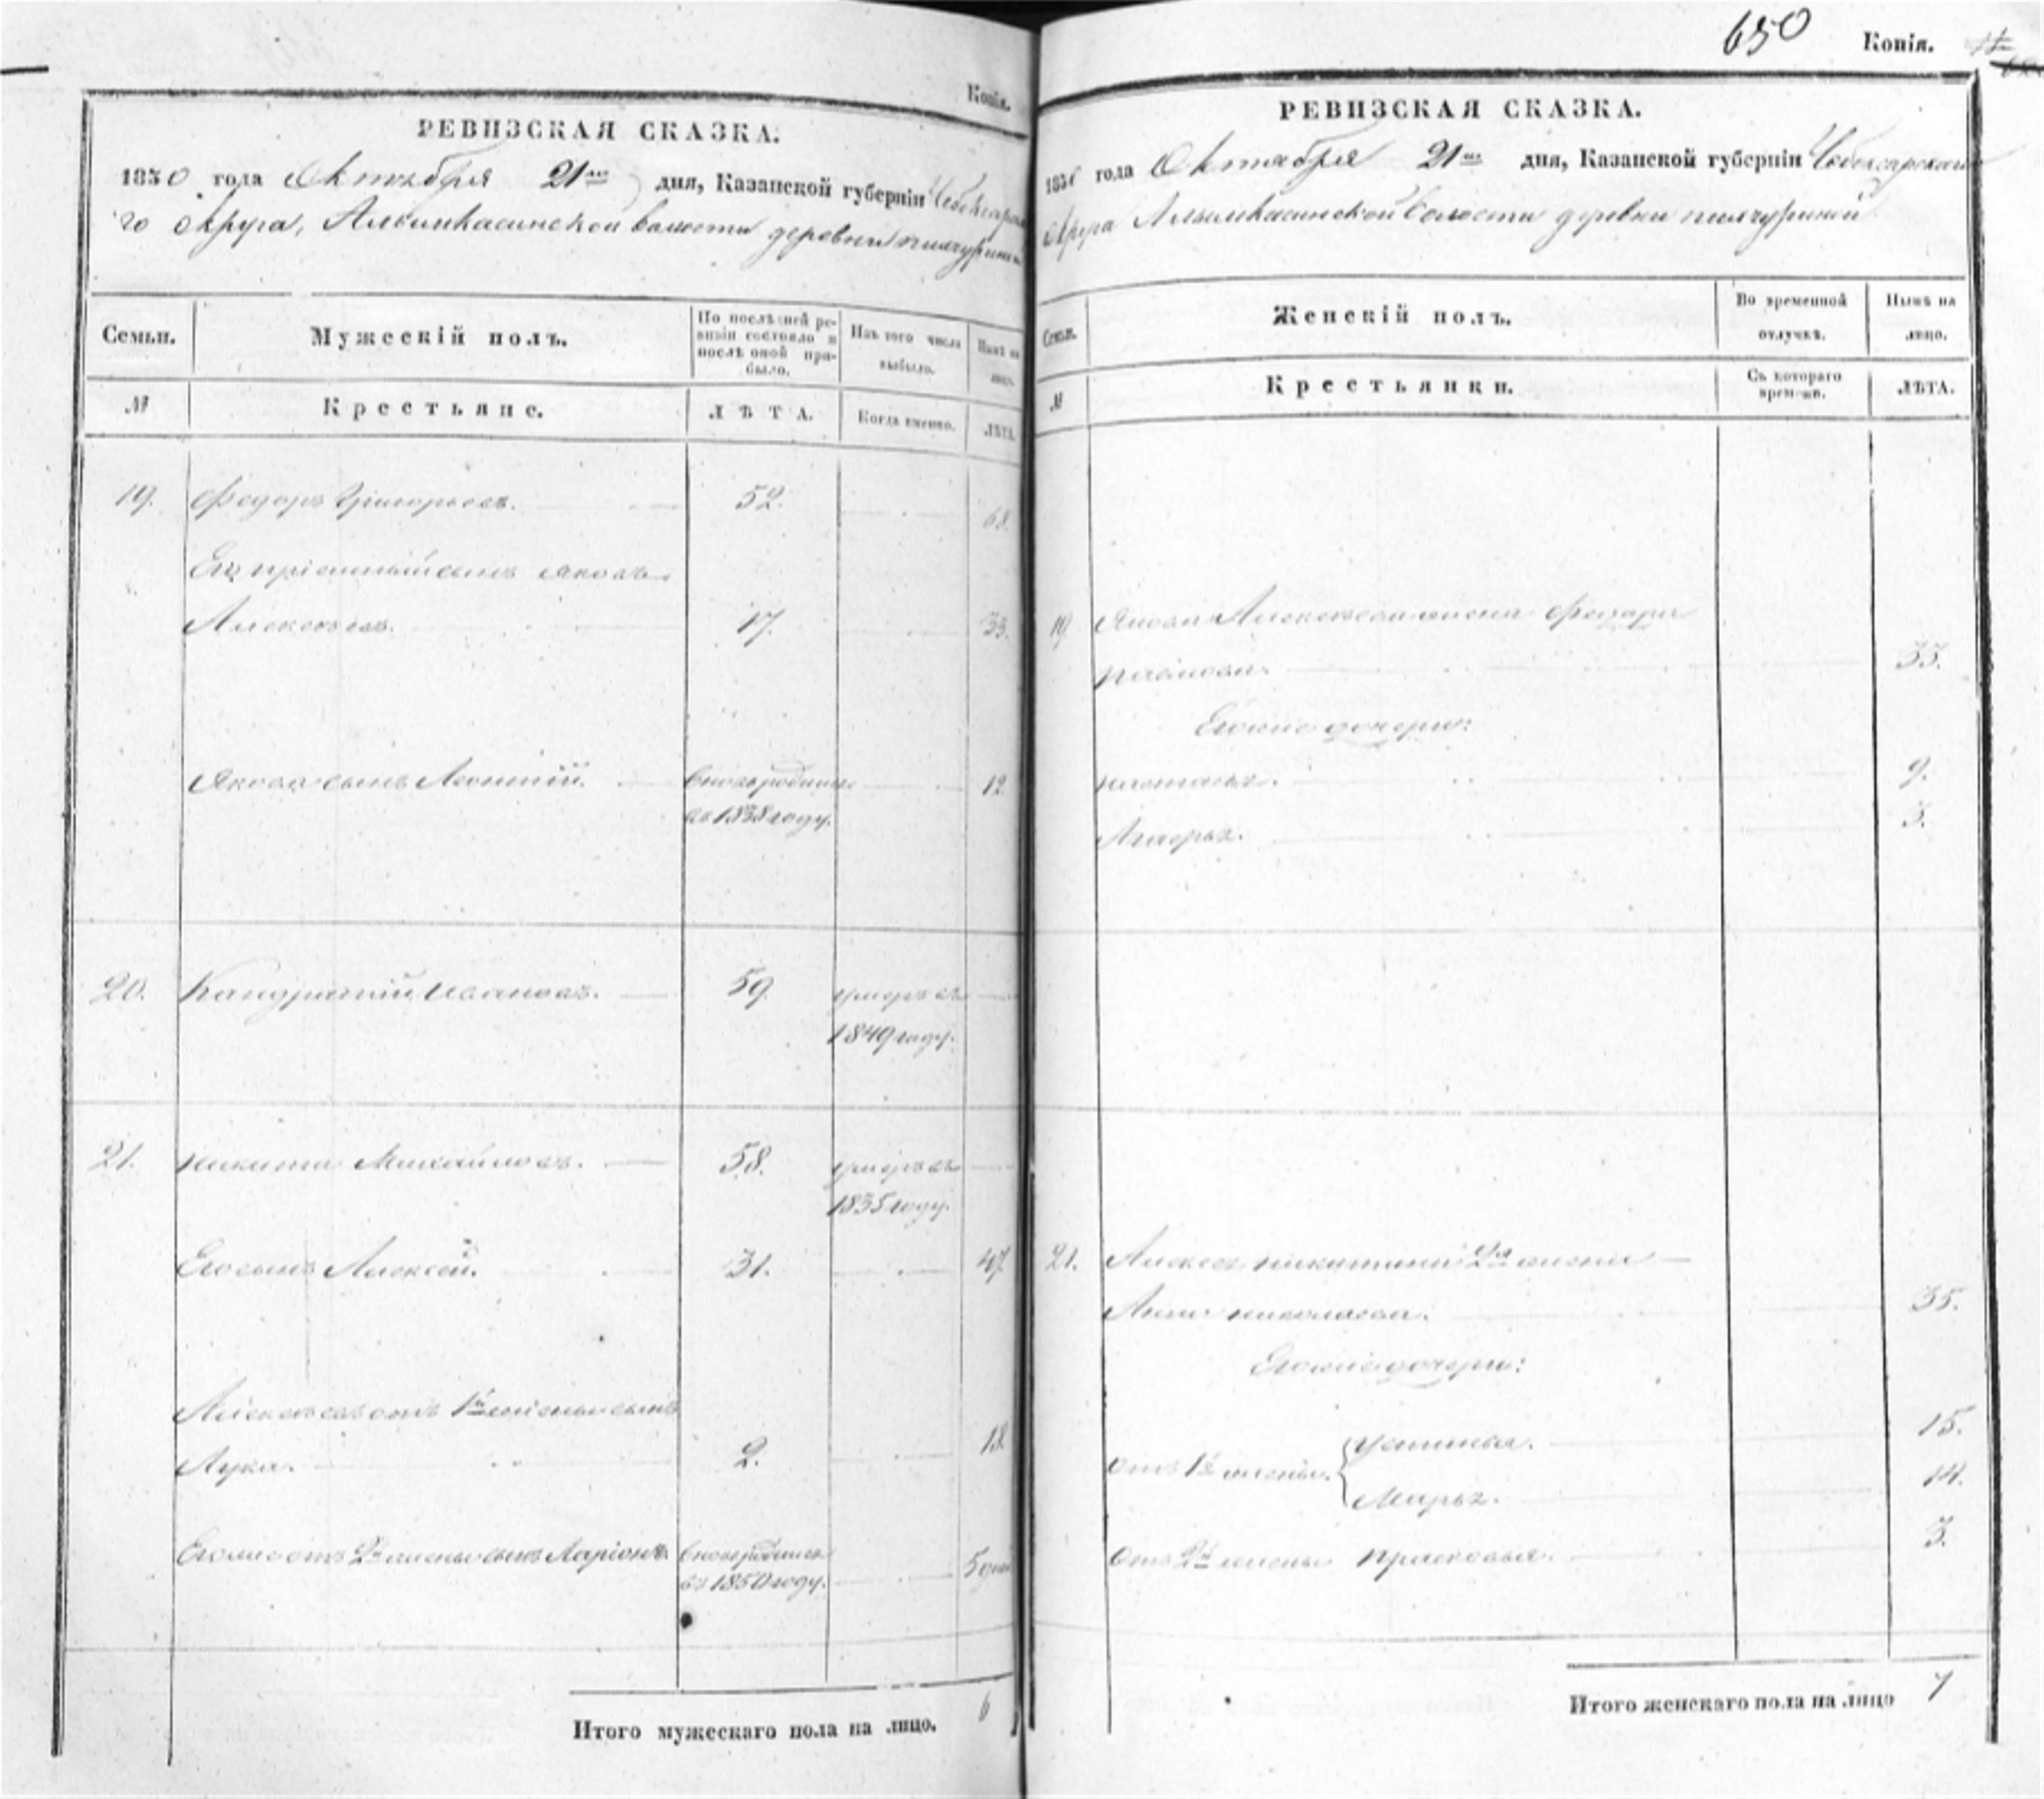 Копія.
РЕВИЗСКАЯ СКАЗКА.
1850 года Октября 21го дня, Казанской губерніи Чебоксарска
го округа, волости деревни
Семьи. Мужескій полъ. По послѣдней ре- Изъ того числа Нынѣ на
визіи состояло и
послѣ оной при- выбыло. лицо.
было.
№ Крестьяне. ЛѢТА. Когда именно. ЛѢТА.
19. Федоръ Григорьевъ. 52. 68.
Его пріемный сынъ Яковъ
Алексѣевъ. 17. 33.
Якова сынъ Леонтій. вновь родился 12
въ 1838 году.
20. Кандратій Ивановъ. 59. умеръ въ
1849 году.
21. Никита Михайловъ. 58. умеръ въ
1835 году.
Его сынъ Алексѣй. 31. 47
Алексѣева отъ 1й жены сынъ
Лука. 2. 18.
Его же отъ 2й жены сынъ Ларіонъ вновь родился 5 дней
въ 1850 году.
Итого мужескаго пола на лицо. 6
650 Копія.
РЕВИЗСКАЯ СКАЗКА.
1850 года Октября 21го дня, Казанской губерніи Чебоксарскаго
округа волости деревни
Семьи. Женскій полъ. Во временной Нынѣ на
отлучкѣ. лицо.
№ Крестьянки. Съ котораго ЛѢТА.
времени.
19. Якова Алексѣева жена Федора
33.
Его же дочери:
9.
3.
21. Алексѣя Никитина 2я жена
Анна Николаева. 35.
Его же дочери:
отъ 1й жены. Устинья. 15.
Марья. 14.
отъ 2й жены Прасковья. 3.
Итого женскаго пола на лицо 7